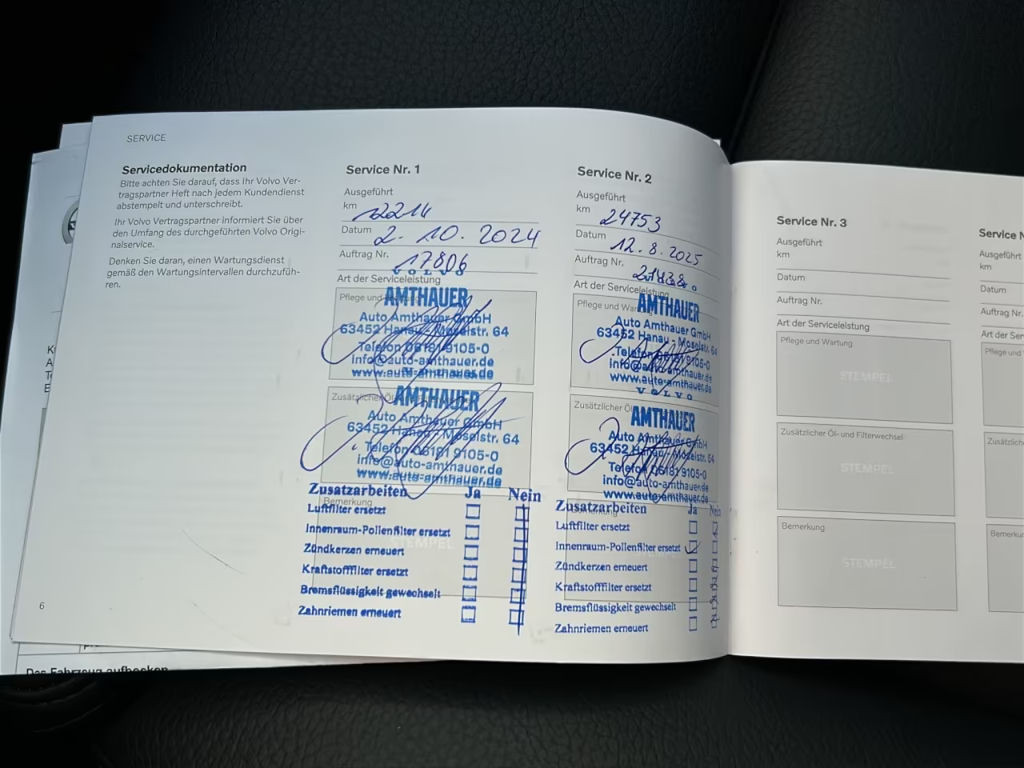 SERVICE
Servicedokumentation
Bitte achten Sie darauf, dass Ihr Volvo Ver-
tragspartner Heft nach jedem Kundendienst
abstempelt und unterschreibt.
Ihr Volvo Vertragspartner informiert Sie über
den Umfang des durchgeführten Volvo Origi-
nalservice.
Denken Sie daran, einen Wartungsdienst
gemäß den Wartungsintervallen durchzufüh-
ren.
6
Service Nr. 1
Ausgeführt
km 12214
Datum 2. 10. 2024
Auftrag Nr. 17806
VOLVO
Art der Serviceleistung
Pflege und
AMTHAUER
Auto Amthauer GmbH
63452 Hanau - Moselstr. 64
Telefon 06181 9105-0
info@auto-amthauer.de
www.auto-amthauer.de
Zusätzlicher Öl-
AMTHAUER
Auto Amthauer GmbH
63452 Hanau - Moselstr. 64
Telefon 06181 9105-0
info@auto-amthauer.de
www.auto-amthauer.de
Zusatzarbeiten Ja Nein
Bemerkung
Luftfilter ersetzt
Innenraum-Pollenfilter ersetzt
Zündkerzen erneuert
STEMPEL
Kraftstofffilter ersetzt
Bremsflüssigkeit gewechselt
Zahnriemen erneuert
Service Nr. 2
Ausgeführt
km 24753
Datum 12. 8. 2025
Auftrag Nr.
Art der Serviceleistung
Pflege und War
AMTHAUER
Auto Amthauer GmbH
63452 Hanau - Moselstr. 64
Telefon 06181 9105-0
info@auto-amthauer.de
www.auto-amthauer.de
VOLVO
Zusätzlicher Öl
AMTHAUER
Auto Amthauer GmbH
63452 Hanau - Moselstr. 64
Telefon 06181 9105-0
info@auto-amthauer.de
www.auto-amthauer.de
Zusatzarbeiten Ja Nein
Luftfilter ersetzt
Innenraum-Pollenfilter ersetzt
Zündkerzen erneuert
Kraftstofffilter ersetzt
Bremsflüssigkeit gewechselt
Zahnriemen erneuert
Service Nr. 3
Ausgeführt
km
Datum
Auftrag Nr.
Art der Serviceleistung
Pflege und Wartung
STEMPEL
Zusätzlicher Öl- und Filterwechsel
STEMPEL
Bemerkung
STEMPEL
Service N
Ausgeführt
km
Datum
Auftrag Nr.
Art der Ser
Pflege und
Zusätzlich
Bemerku
Das Fahrzeug aufbocken